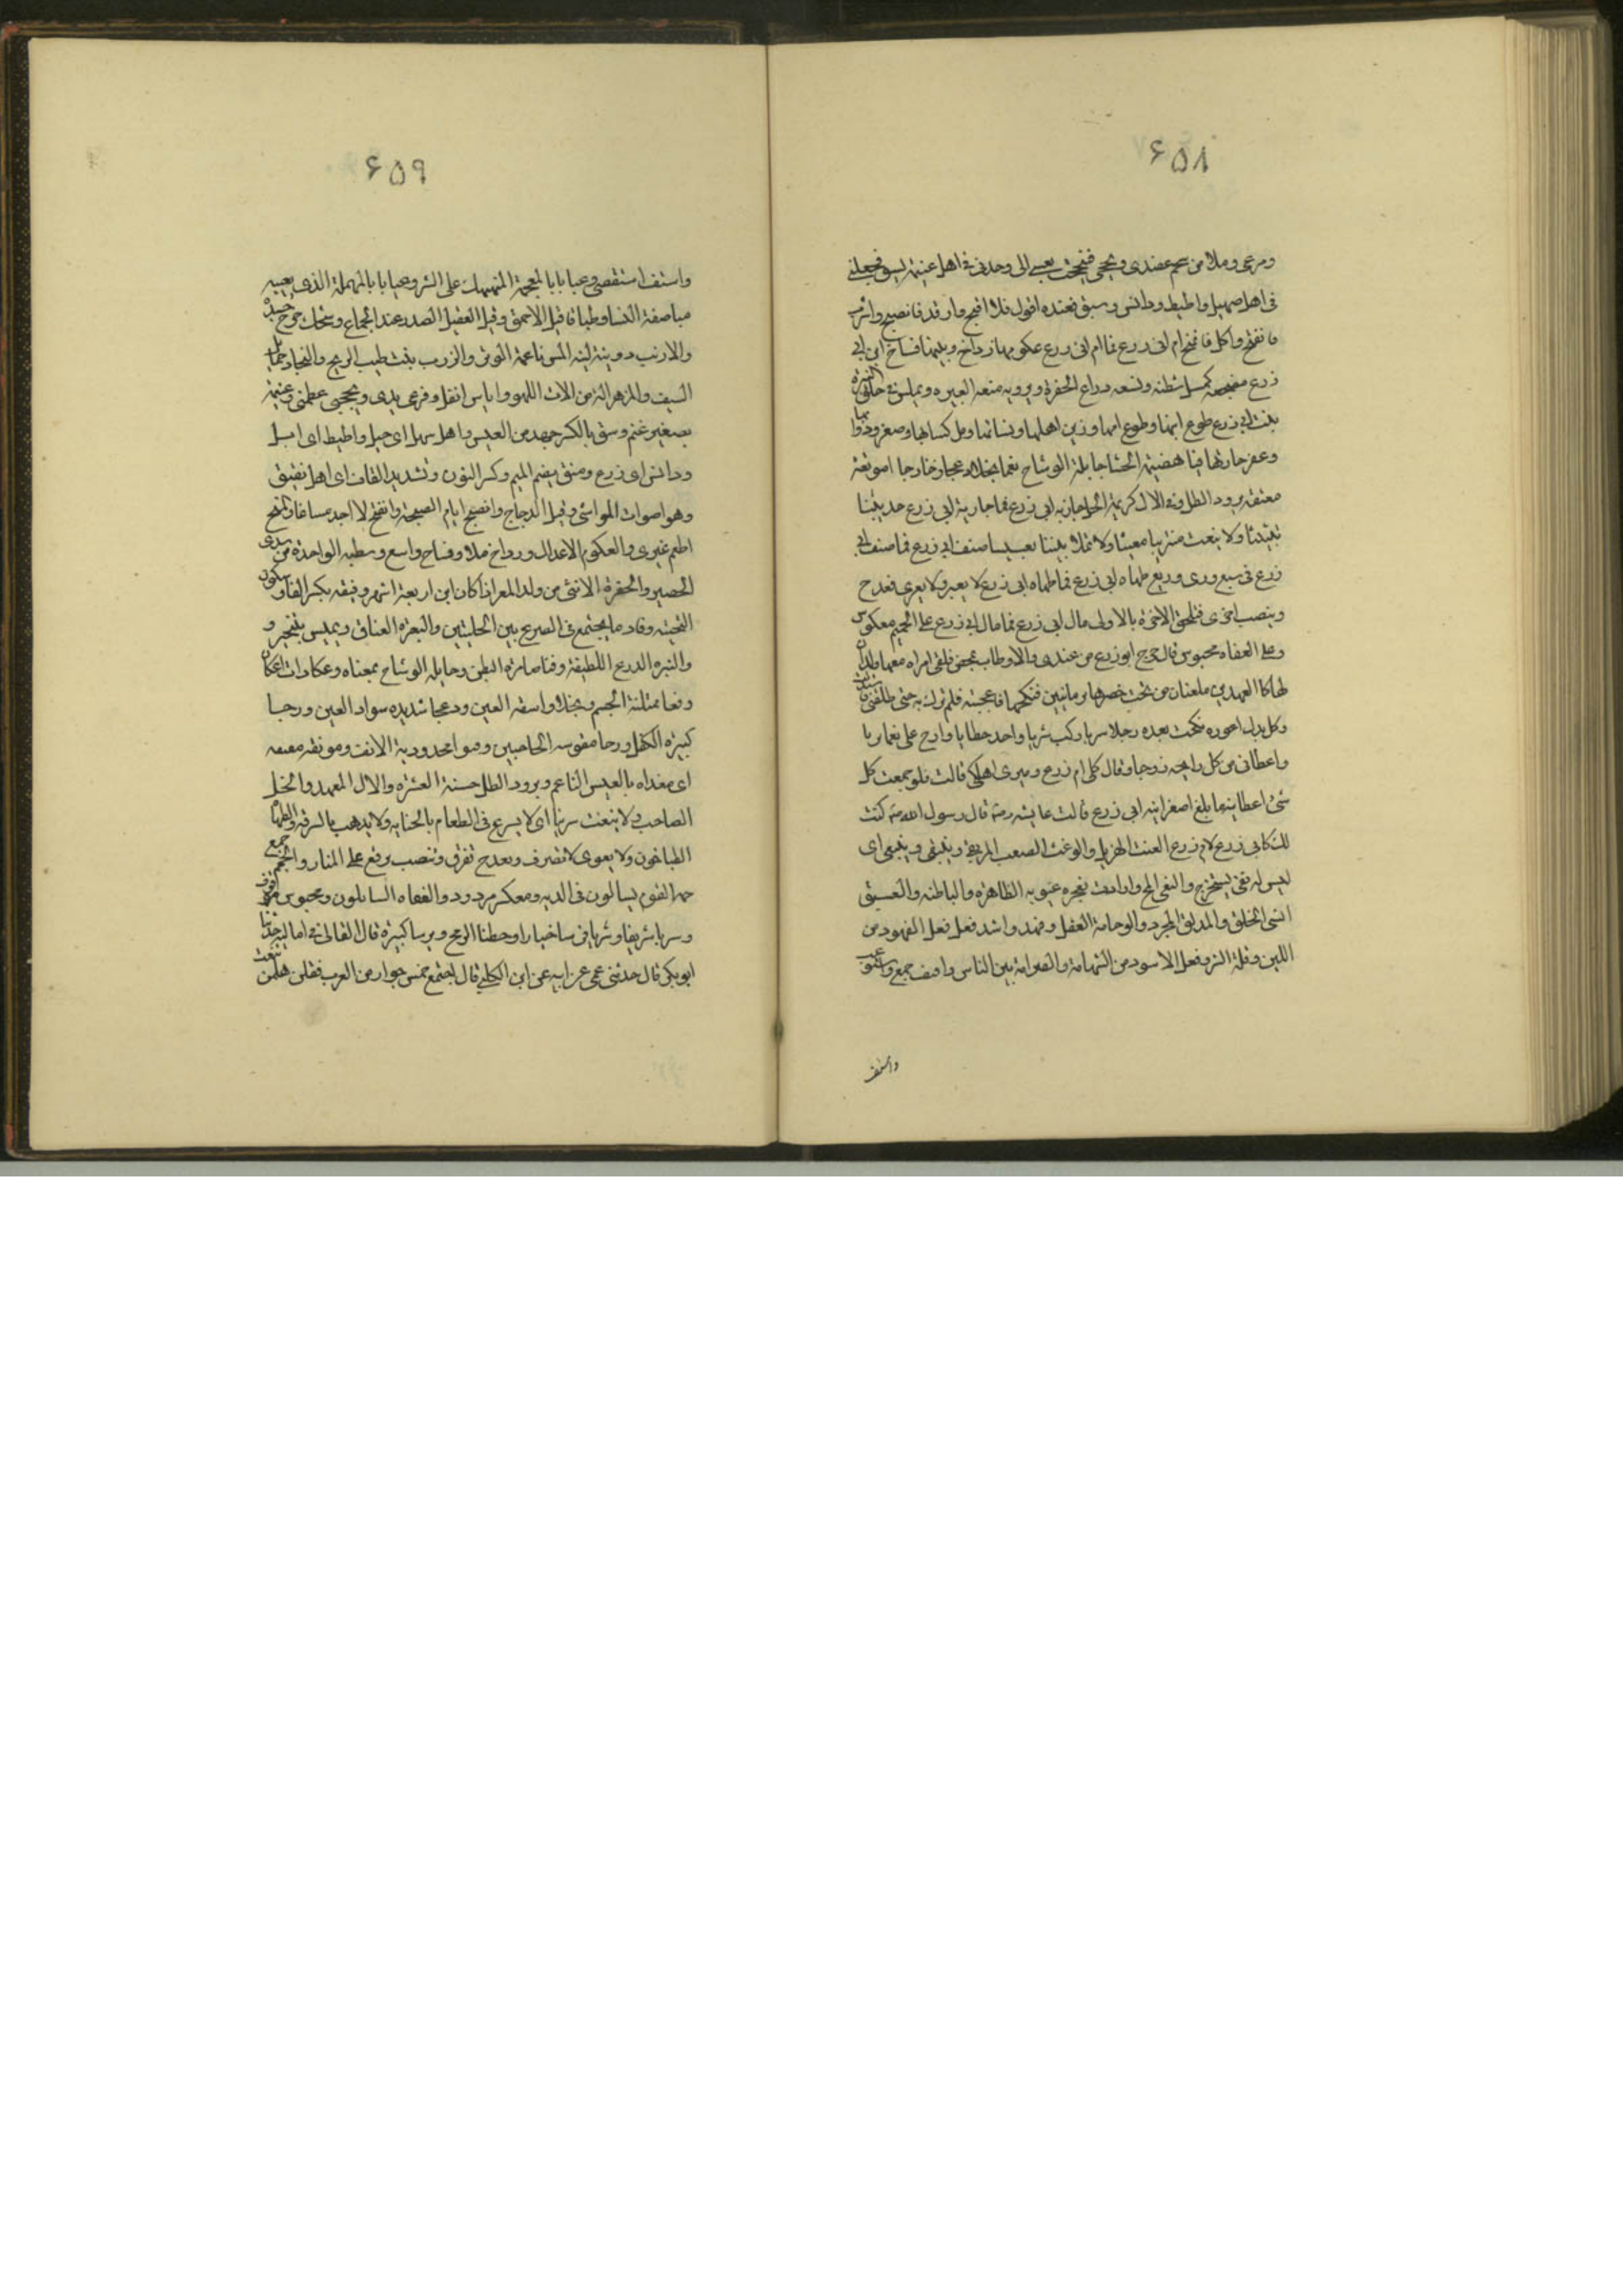 ۶۵۸
وفرعى وملا من شحم عضدى وبجحنى فبجحت نفسى الى وجدنى فى اهل غنيمة بشق فجعلنى
فى اهل صهيل واطيط ودائس ومنق فعنده اقول فلا اقبح وارقد فاتصبح واشرب
فاتقنح واكل فاتمنح ام ابى زرع فما ام ابى زرع عكومها رداح وبيتها فساح ابن ابى
زرع كمسل شطبه وتشبعه ذراع الجفرة وترويه فيقة اليعره ويميس فى حلق النتره
بنت ابى زرع طوع ابيها وطوع امها وزين اهلها ونسائها ومل كسائها وصفر ردائها
وعقر جارتها قبا هضيمة الحشا جايلة الوشاح
برود الظل وفى الال كريمة الخل جاريه ابى زرع فما جارية ابى زرع لا تبث حديثنا
تبثيثا ولا تنقث ميرتنا تنقيثا ولا تملا بيتنا تعشيشا ضيف ابى زرع فما ضيف ابى
زرع فى شبع ورى ورتع طهاه ابى زرع فما طهاه ابى زرع لا تفتر ولا تعرى تقدح
وتنصب اخرى فتلحق الاخرة بالاولى مال ابى زرع فما مال ابى زرع على الجمم معكوس
وعلى العفاه محبوس قال خرج ابو زرع من عندى والاوطاب تمخض فلقى امراه معها ولدان
لها كالفهدين يلعبان من تحت خصرها برمانتين فنكحها فاعجبته فلم تزل به حتى طلقنى
وكل بدل اعور فنكحت بعده رجلا سريا ركب شريا واخذ خطيا واراح على نعما ثريا
واعطانى من كل رايحه زوجا وقال كلى ام زرع وميرى اهلك قالت فلو جمعت كل
شئ اعطانيه ما بلغ اصغر انيه ابى زرع قالت عايشه رضه قال رسول الله صه كنت
لك كابى زرع لام زرع الغث الهزيل والوعث الصعب المرتقى وينتقى اى
ليس له نقى يستخرج والنقى المخ وارادت بعجره وبجره عيوبه الظاهره والباطنه والعشنق
السئ الخلق والمذلق المجرد والوخامة الثقل وفهد واسد فعل فعل الفهود من
اللين وقلة الشر وفعل الاسود من الشهامة والصرامة بين الناس واقتف جمع واستوعب
واشتف
۶۵۹
واشتف استقصى وغيايا بالمعجمة المنهمك على الشر وعيايا بالمهملة الذى يعييه
مباضعة النسا وطباقا قيل الاحمق وقيل الثقيل الصدر عند الجماع وشجك جرح جسده
والارنب دويبة لينة المس ناعمة الوبر والزرنب نبت طيب الريح والنجاد حمايل
السيف والمزهر اله من الات اللهو واناس اثقل وفرعى يدى وبجحنى عظمنى وغنيمة
تصغير غنم وشق بالكسر جهد من العيش واهل صهيل اى خيل واطيط اى ابل
ودائس اى زرع ومنق بضم الميم وكسر النون وتشديد القاف اى اهل نقيق
وهو اصوات المواشى وقيل الدجاج واتصبح انام الصبحة واتقنح لا اجد مساغا واتمنح
اطعم غيرى والعكوم الاعدال ورداح ملا وفساح واسع وشطبه الواحدة من سدى
الحصير والجفرة الانثى من ولد المعز اذا كان ابن اربعة اشهر وفيقه بكسر الفا وسكون
التحتيه وقاف ما يجتمع فى الضرع بين الحلبتين واليعره العناق ويميس يتبختر و
والنتره الدرع اللطيفة وقبا ضامرة البطن وجايلة الوشاح بمعناه وعكنا ذات اعكان
وفعما ممتلئة الجسم ونجلا واسعه العين ودعجا شديده سواد العين ورجا
كبيره الكفل وزجا مقوسه الحاجبين وقنوا محدودبة الانف ومونقه معنقه
اى مغذاه بالعيش الناعم وبرود الظل حسنة العشره والال العهد والخل
الصاحب ولا تنقث ميرتنا اى لا يسرع فى الطعام بالخيانه ولا يذهب بالسرقه والطهاه
الطباخون ولا تعرى لا تصرف وتقدح تغرف وتنصب ترفع على النار والجمم جمع
جمه القوم يسالون فى الديه ومعكس مردود والعفاه السايلون ومحبوس موقوف
وسريا شريفا وشريا فرسا خيارا وخطيا الرمح وثريا كبيره قال القالى فى اماليه حدثنا
ابو بكر قال حدثنى عمى عن ابيه عن ابن الكلبى قال اجتمع خمس جوار من العرب فقلن هلمن ننعت